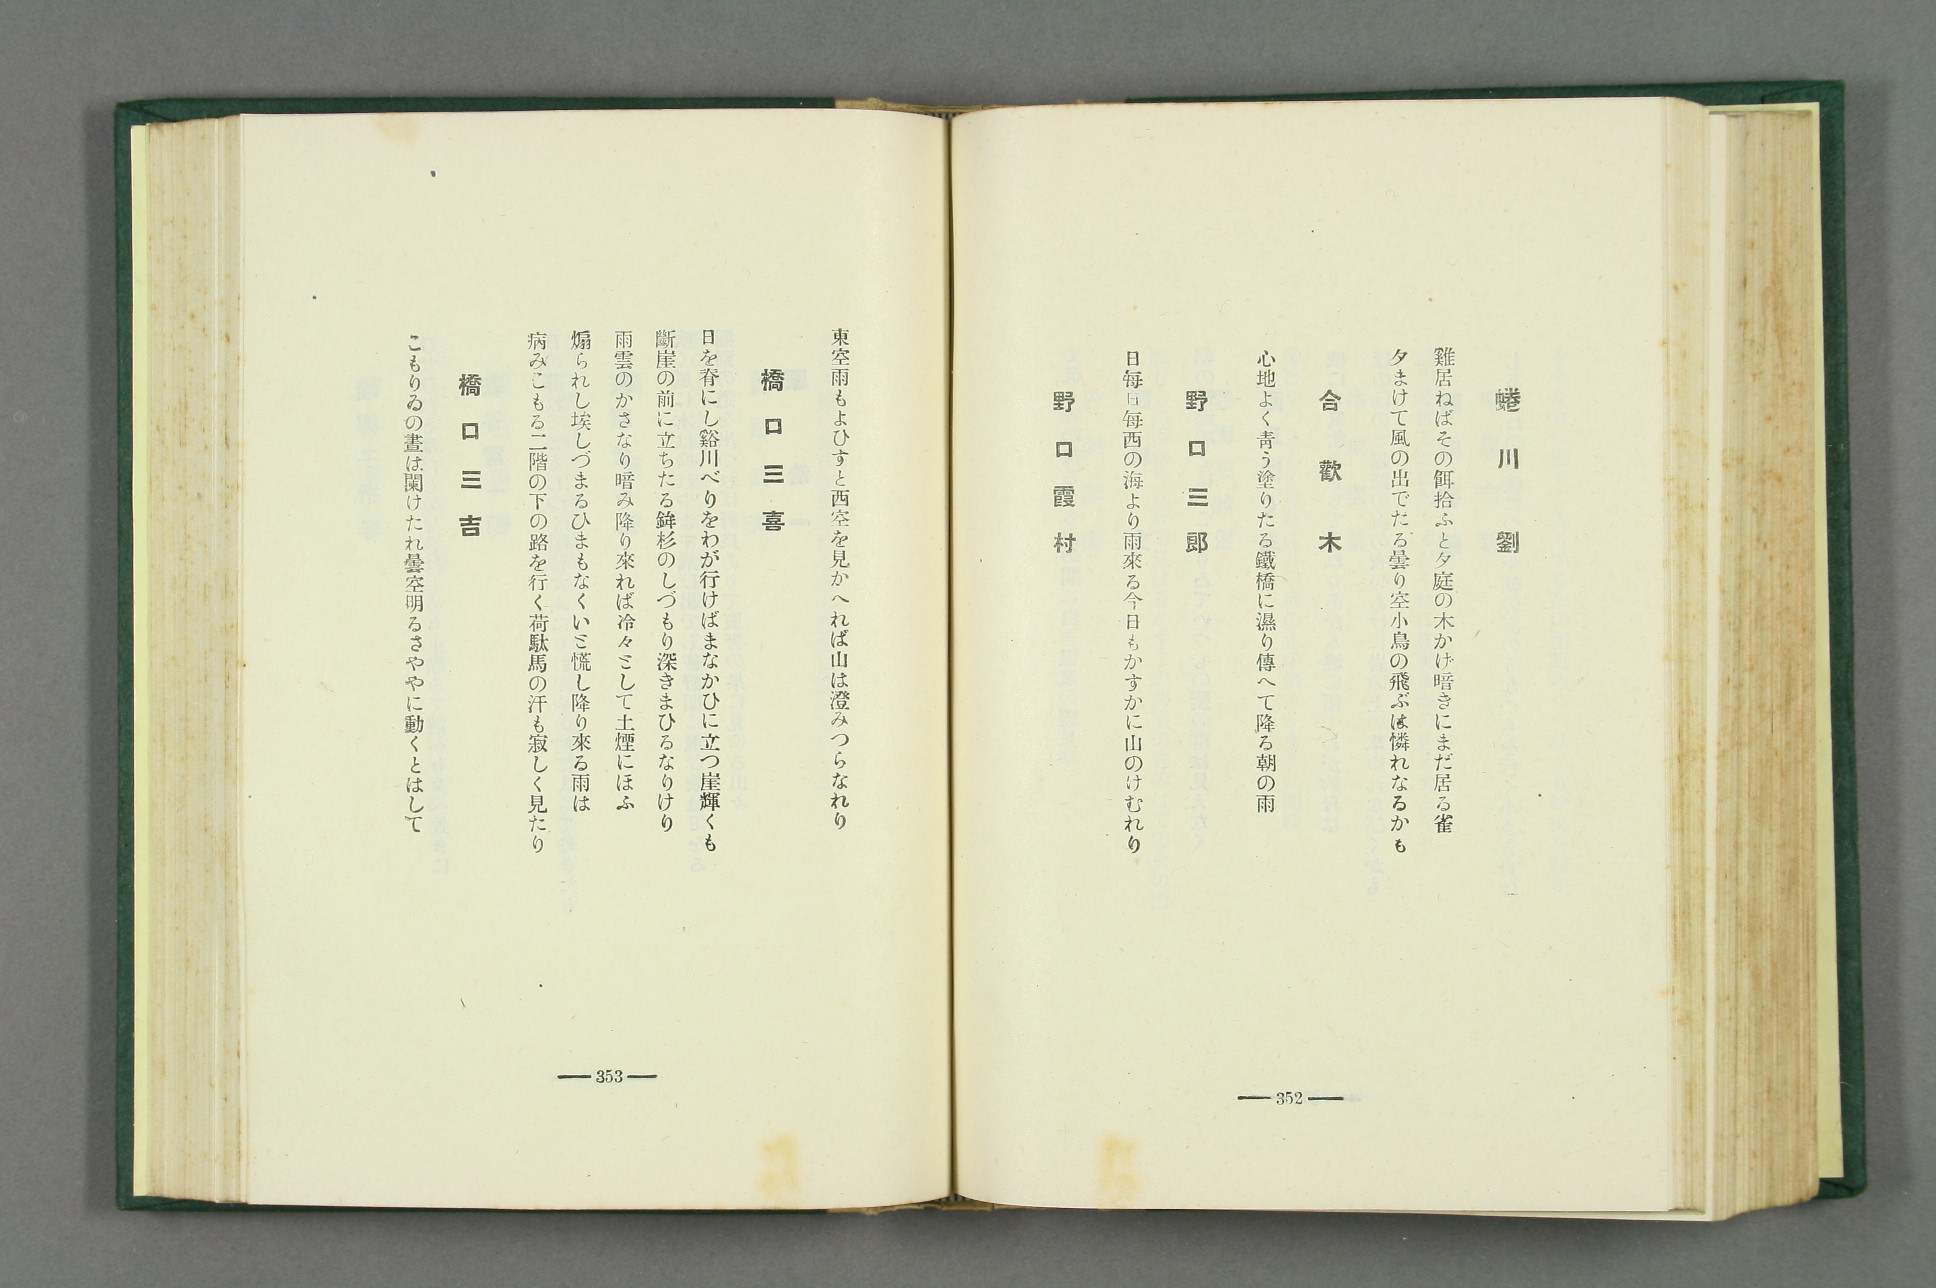 蜷川劉
雞居ねばその餌拾ふと夕庭の木かげ暗きにまだ居る雀
夕まけて風の出でたる曇り空小鳥の飛ぶは憐れなるかも
合歡木
心地よく靑う塗りたる鐵橋に濕り傳へて降る朝の雨
野口三郎
日每日每西の海より雨來る今日もかすかに山のけむれり
野口霞村
― 352 ―
東空雨もよひすと西空を見かへれば山は澄みつらなれり
橋口三喜
日を脊にし谿川べりをわが行けばまなかひに立つ崖輝くも
斷崖の前に立ちたる鉾杉のしづもり深きまひるなりけり
雨雲のかさなり暗み降り來れば冷々として土煙にほふ
煽られし埃しづまるひまもなくいと慌し降り來る雨は
病みこもる二階の下の路を行く荷駄馬の汗も寂しく見たり
橋口三吉
こもりゐの晝は闌けたれ曇空明るさややに動くとはして
― 353 ―